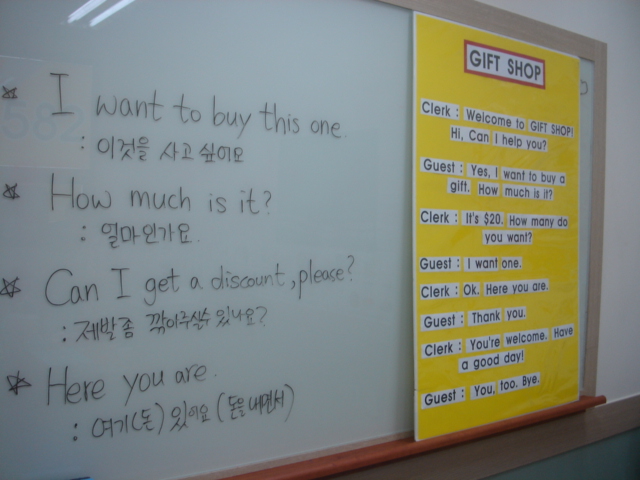 ☆ I want to buy this one.
: 이것을 사고 싶어요
☆ How much is it?
: 얼마인가요.
☆ Can I get a discount, please?
: 제발좀 깎아주실수 있나요?
☆ Here you are.
: 여기(돈) 있어요 (돈을 내면서)
GIFT SHOP
Clerk : Welcome to GIFT SHOP!
Hi, Can I help you?
Guest : Yes, I want to buy a
gift. How much is it?
Clerk : It's $20. How many do
you want?
Guest : I want one.
Clerk : Ok. Here you are.
Guest : Thank you.
Clerk : You're welcome. Have
a good day!
Guest : You, too. Bye.